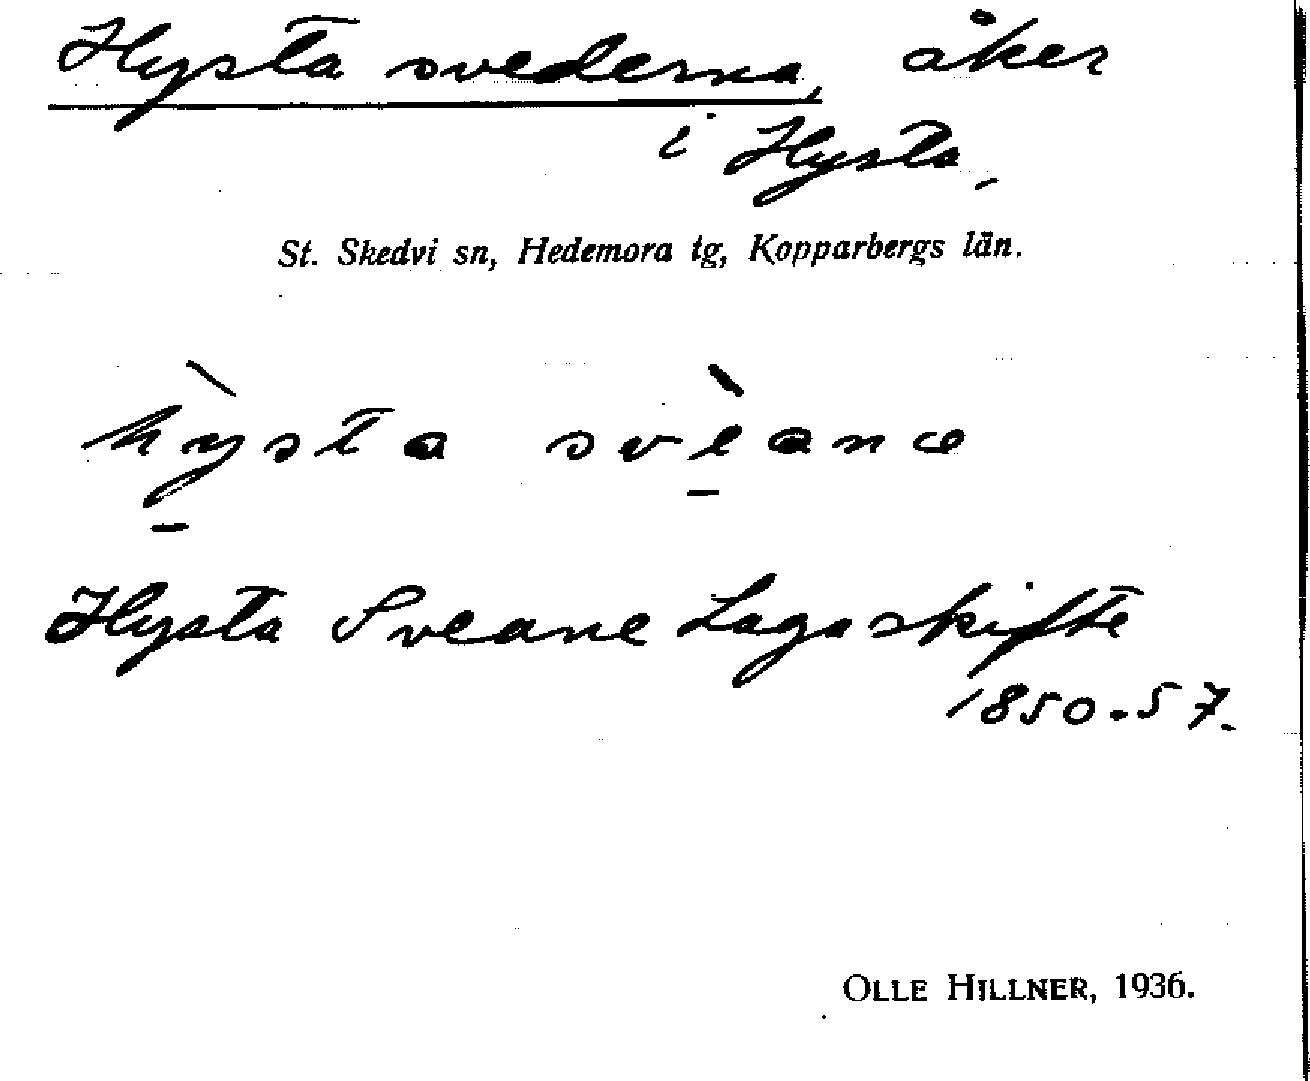 Hysta svederna, åker
i Hysta,
St. Skedvi sn, Hedemora tg, Kopparbergs län.
hỳ̠sta svè̠anæ
Hysta Sveane Laga skifte
1850-57.
OLLE HILLNER, 1936.